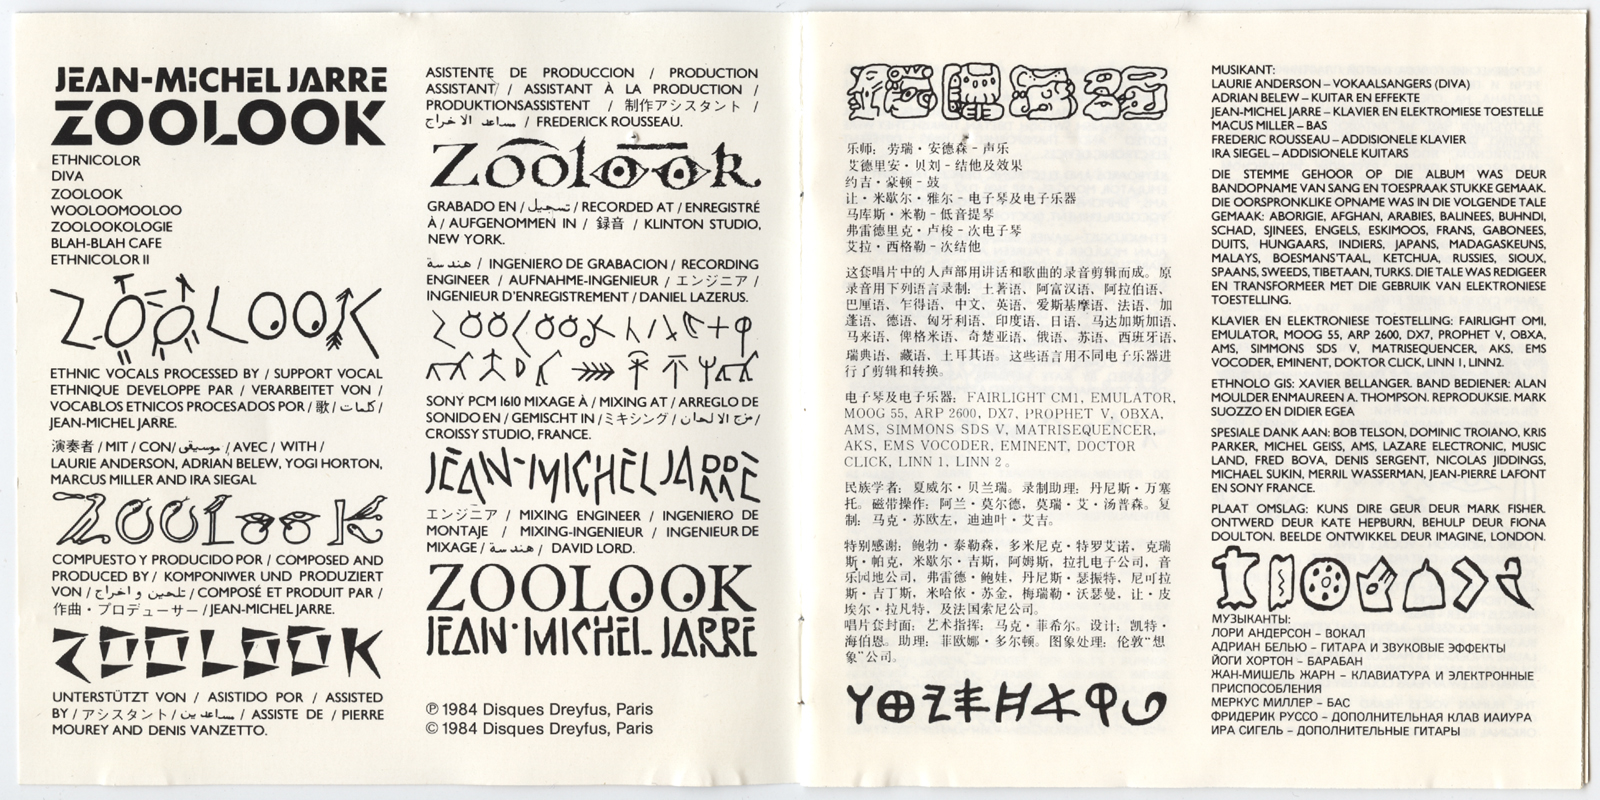 JEAN-MICHEL JARRE
ZOOLOOK
ETHNICOLOR
DIVA
ZOOLOOK
WOOLOOMOOLOO
ZOOLOOKOLOGIE
BLAH-BLAH CAFE
ETHNICOLOR II
ZOOLOOK
ETHNIC VOCALS PROCESSED BY / SUPPORT VOCAL
ETHNIQUE DEVELOPPE PAR / VERARBEITET VON /
VOCABLOS ETNICOS PROCESADOS POR / 歌 / كلمات /
JEAN-MICHEL JARRE.
演奏者 / MIT / CON / موسيقى / AVEC / WITH /
LAURIE ANDERSON, ADRIAN BELEW, YOGI HORTON,
MARCUS MILLER AND IRA SIEGAL
ZOOLOOK
COMPUESTO Y PRODUCIDO POR / COMPOSED AND
PRODUCED BY / KOMPONIWER UND PRODUZIERT
VON / تلحين و اخراج / COMPOSÉ ET PRODUIT PAR /
作曲・プロデューサー / JEAN-MICHEL JARRE.
ZOOLOOK
UNTERSTÜTZT VON / ASISTIDO POR / ASSISTED
BY / アシスタント / مساعدين / ASSISTE DE / PIERRE
MOUREY AND DENIS VANZETTO.
ASISTENTE DE PRODUCCION / PRODUCTION
ASSISTANT / ASSISTANT À LA PRODUCTION /
PRODUKTIONSASSISTENT / 制作アシスタント /
مساعد الاخراج / FREDERICK ROUSSEAU.
ZOOLOOK
GRABADO EN / تسجيل / RECORDED AT / ENREGISTRÉ
À / AUFGENOMMEN IN / 録音 / KLINTON STUDIO,
NEW YORK.
هندسة / INGENIERO DE GRABACION / RECORDING
ENGINEER / AUFNAHME-INGENIEUR / エンジニア /
INGENIEUR D'ENREGISTREMENT / DANIEL LAZERUS.
ZOOLOOK
SONY PCM 1610 MIXAGE À / MIXING AT / ARREGLO DE
SONIDO EN / GEMISCHT IN / ミキシング / مزج الالحان /
CROISSY STUDIO, FRANCE.
JEAN-MICHEL JARRE
エンジニア / MIXING ENGINEER / INGENIERO DE
MONTAJE / MIXING-INGENIEUR / INGENIEUR DE
MIXAGE / هندسة / DAVID LORD.
ZOOLOOK
JEAN-MICHEL JARRE
℗ 1984 Disques Dreyfus, Paris
© 1984 Disques Dreyfus, Paris
乐师: 劳瑞・安德森 – 声乐
艾德里安・贝刘 – 结他及效果
约吉・豪顿 – 鼓
让・米歇尔・雅尔 – 电子琴及电子乐器
马库斯・米勒 – 低音提琴
弗雷德里克・卢梭 – 次电子琴
艾拉・西格勒 – 次结他
这套唱片中的人声部用讲话和歌曲的录音剪辑而成。原
录音用下列语言录制: 土著语、阿富汉语、阿拉伯语、
巴厘语、乍得语、中文、英语、爱斯基摩语、法语、加
蓬语、德语、匈牙利语、印度语、日语、马达加斯加语、
马来语、俾格米语、奇楚亚语、俄语、苏语、西班牙语、
瑞典语、藏语、土耳其语。这些语言用不同电子乐器进
行了剪辑和转换。
电子琴及电子乐器: FAIRLIGHT CM1, EMULATOR,
MOOG 55, ARP 2600, DX7, PROPHET V, OBXA,
AMS, SIMMONS SDS V, MATRISEQUENCER,
AKS, EMS VOCODER, EMINENT, DOCTOR
CLICK, LINN 1, LINN 2。
民族学者: 夏威尔・贝兰瑞。录制助理: 丹尼斯・万塞
托。磁带操作: 阿兰・莫尔德，莫瑞・艾・汤普森。复
制: 马克・苏欧左，迪迪叶・艾吉。
特别感谢: 鲍勃・泰勒森，多米尼克・特罗艾诺，克瑞
斯・帕克，米歇尔・吉斯，阿姆斯，拉扎电子公司，音
乐园地公司，弗雷德・鲍娃，丹尼斯・瑟振特，尼可拉
斯・吉丁斯，米哈依・苏金，梅瑞勒・沃瑟曼，让・皮
埃尔・拉凡特，及法国索尼公司。
唱片套封面: 艺术指挥: 马克・菲希尔。设计: 凯特・
海伯恩。助理: 菲欧娜・多尔顿。图象处理: 伦敦“想
象”公司。
MUSIKANT:
LAURIE ANDERSON – VOKAALSANGERS (DIVA)
ADRIAN BELEW – KUITAR EN EFFEKTE
JEAN-MICHEL JARRE – KLAVIER EN ELEKTROMIESE TOESTELLE
MACUS MILLER – BAS
FREDERIC ROUSSEAU – ADDISIONELE KLAVIER
IRA SIEGEL – ADDISIONELE KUITARS
DIE STEMME GEHOOR OP DIE ALBUM WAS DEUR
BANDOPNAME VAN SANG EN TOESPRAAK STUKKE GEMAAK.
DIE OORSPRONKLIKE OPNAME WAS IN DIE VOLGENDE TALE
GEMAAK: ABORIGIE, AFGHAN, ARABIES, BALINEES, BUHNDI,
SCHAD, SJINEES, ENGELS, ESKIMOOS, FRANS, GABONEES,
DUITS, HUNGAARS, INDIERS, JAPANS, MADAGASKEUNS,
MALAYS, BOESMANS'TAAL, KETCHUA, RUSSIES, SIOUX,
SPAANS, SWEEDS, TIBETAAN, TURKS. DIE TALE WAS REDIGEER
EN TRANSFORMEER MET DIE GEBRUIK VAN ELEKTRONIESE
TOESTELLING.
KLAVIER EN ELEKTRONIESE TOESTELLING: FAIRLIGHT OMI,
EMULATOR, MOOG 55, ARP 2600, DX7, PROPHET V, OBXA,
AMS, SIMMONS SDS V, MATRISEQUENCER, AKS, EMS
VOCODER, EMINENT, DOKTOR CLICK, LINN 1, LINN2.
ETHNOLO GIS: XAVIER BELLANGER. BAND BEDIENER: ALAN
MOULDER ENMAUREEN A. THOMPSON. REPRODUKSIE. MARK
SUOZZO EN DIDIER EGEA
SPESIALE DANK AAN: BOB TELSON, DOMINIC TROIANO, KRIS
PARKER, MICHEL GEISS, AMS, LAZARE ELECTRONIC, MUSIC
LAND, FRED BOVA, DENIS SERGENT, NICOLAS JIDDINGS,
MICHAEL SUKIN, MERRIL WASSERMAN, JEAN-PIERRE LAFONT
EN SONY FRANCE.
PLAAT OMSLAG: KUNS DIRE GEUR DEUR MARK FISHER.
ONTWERD DEUR KATE HEPBURN, BEHULP DEUR FIONA
DOULTON. BEELDE ONTWIKKEL DEUR IMAGINE, LONDON.
МУЗЫКАНТЫ:
ЛОРИ АНДЕРСОН – ВОКАЛ
АДРИАН БЕЛЬЮ – ГИТАРА И ЗВУКОВЫЕ ЭФФЕКТЫ
ЙОГИ ХОРТОН – БАРАБАН
ЖАН-МИШЕЛЬ ЖАРН – КЛАВИАТУРА И ЭЛЕКТРОННЫЕ
ПРИСПОСОБЛЕНИЯ
МЕРКУС МИЛЛЕР – БАС
ФРИДЕРИК РУССО – ДОПОЛНИТЕЛЬНАЯ КЛАВ ИАИУРА
ИРА СИГЕЛЬ – ДОПОЛНИТЕЛЬНЫЕ ГИТАРЫ